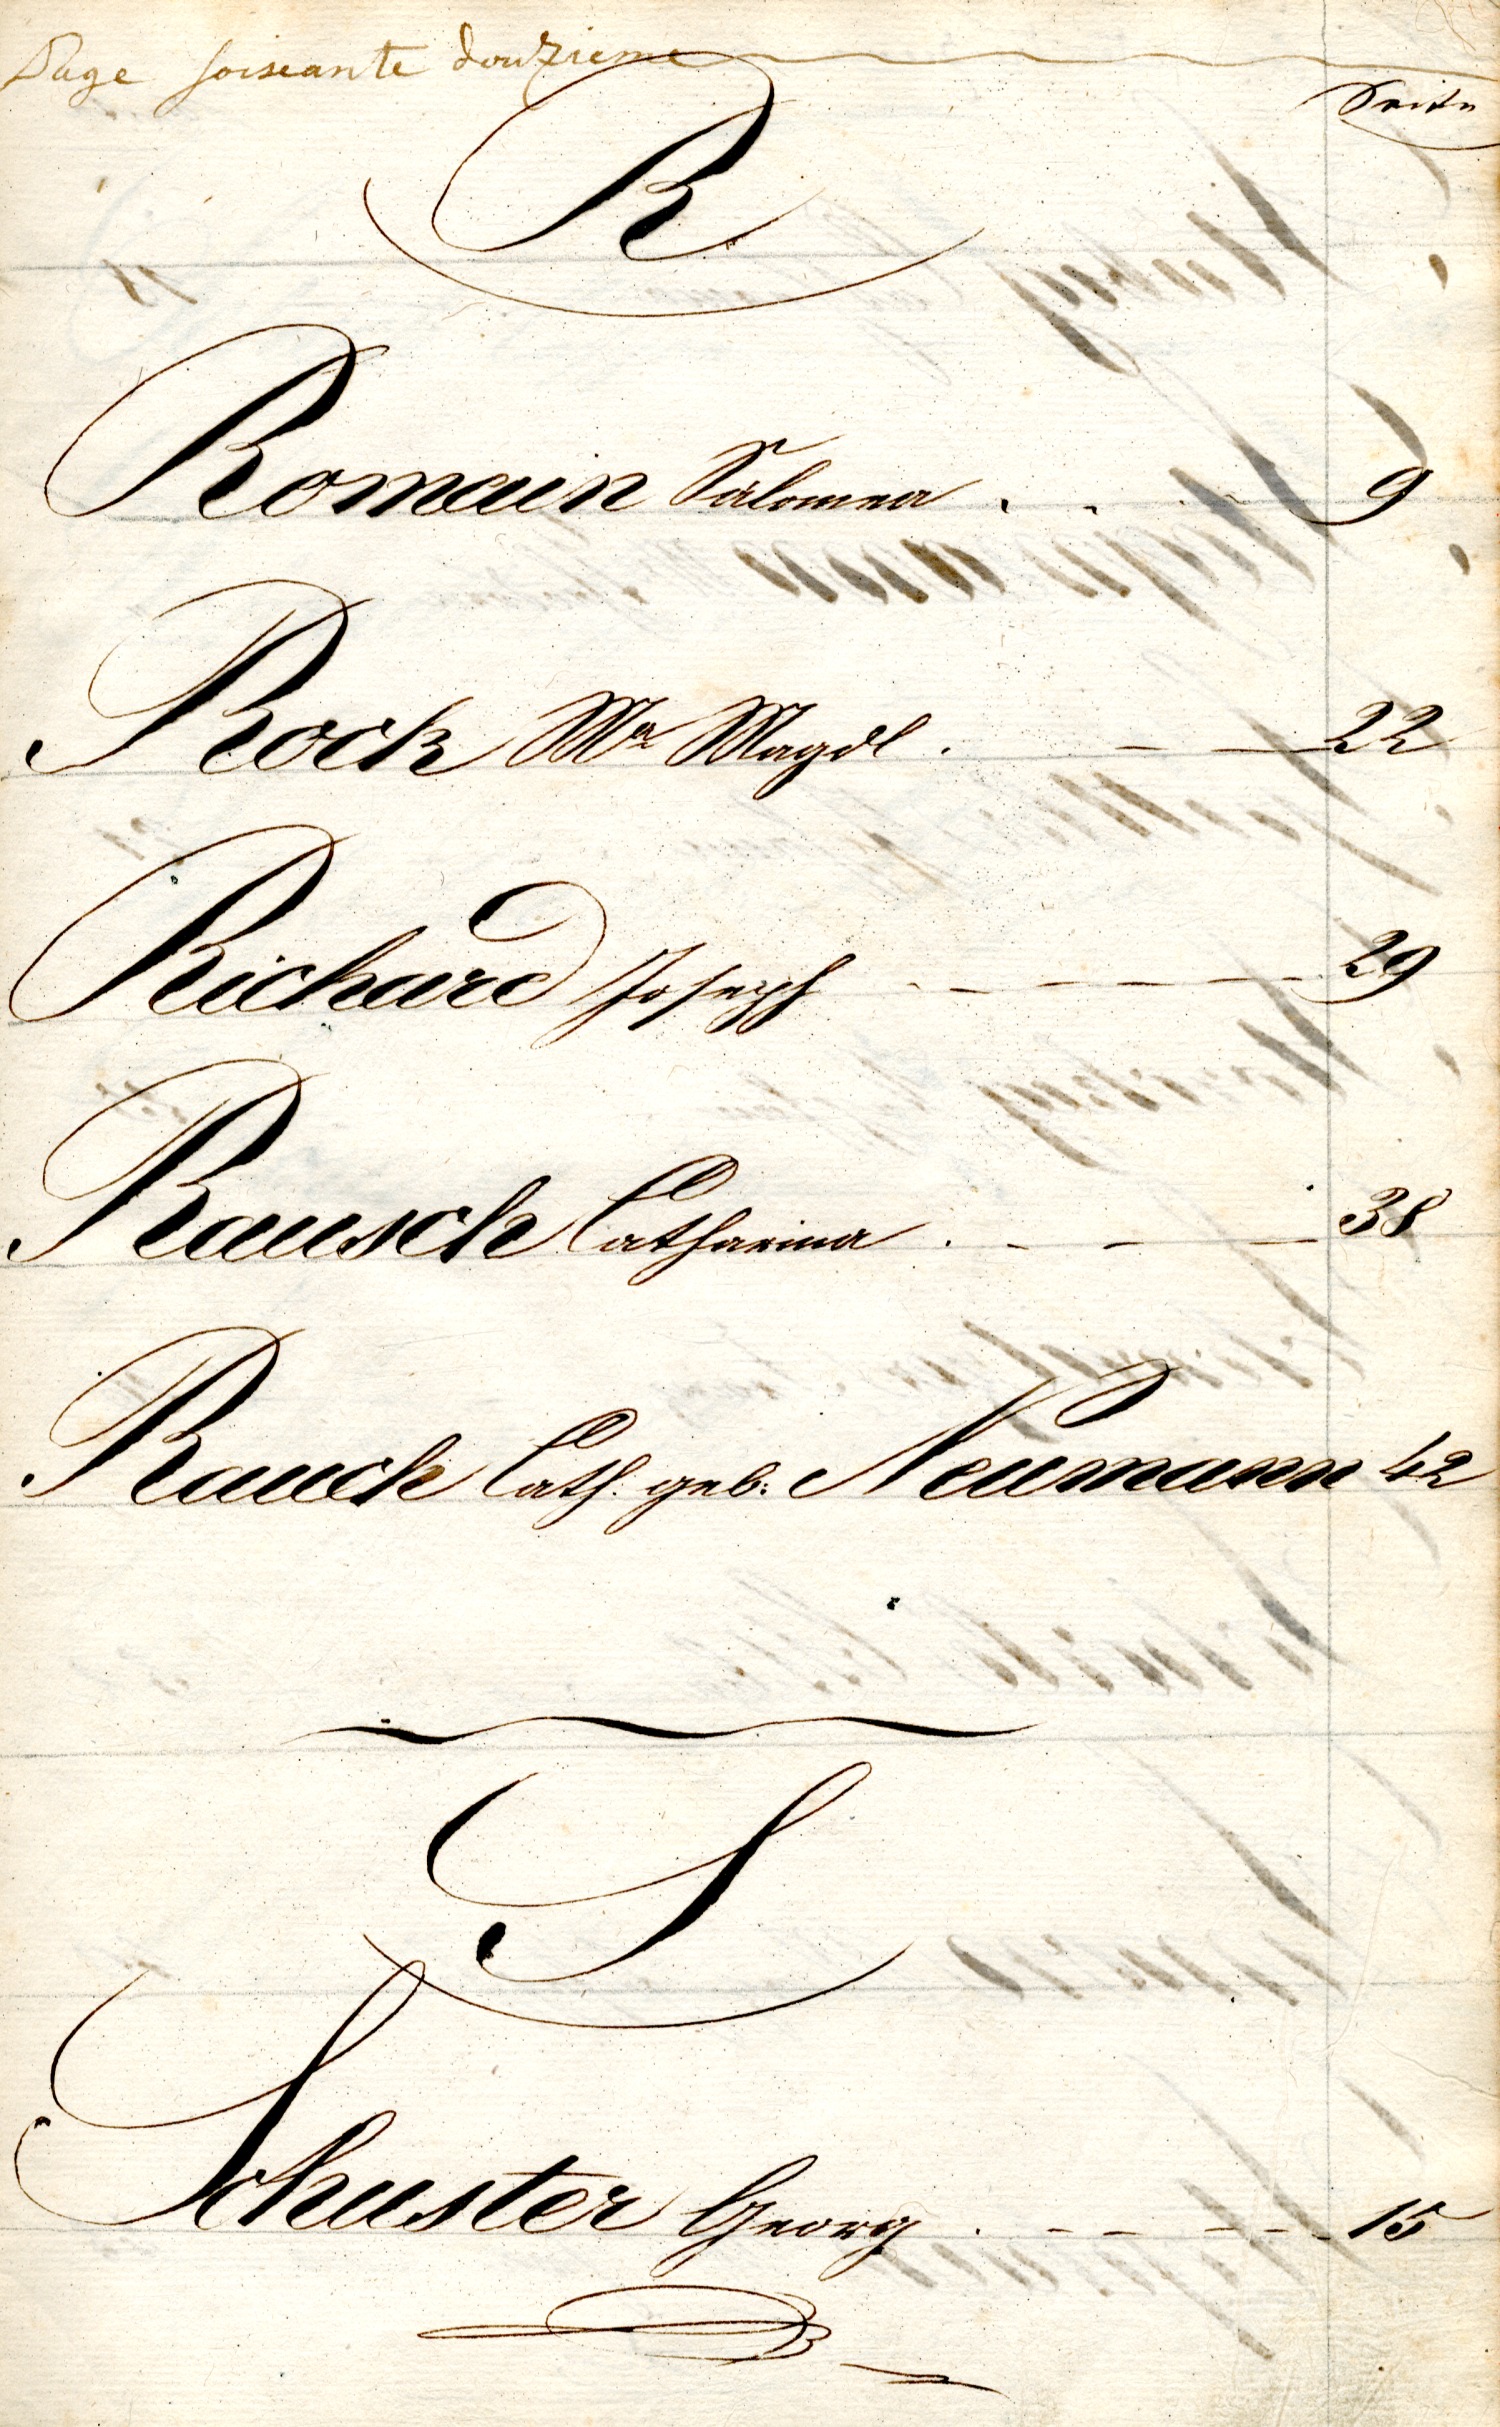 Page soiseante douzieme
Seite
R
Romain Salomea . . 9
Rock Mᵃ Magdl . _ _ 22
Richard Joseph _ _ _ _ _ _ 29
Rausch Catharina . _ _ _ 38
Rauch Cath. geb: Neumann 42
S
Schuster Georg . _ _ _ _ _ _ 15